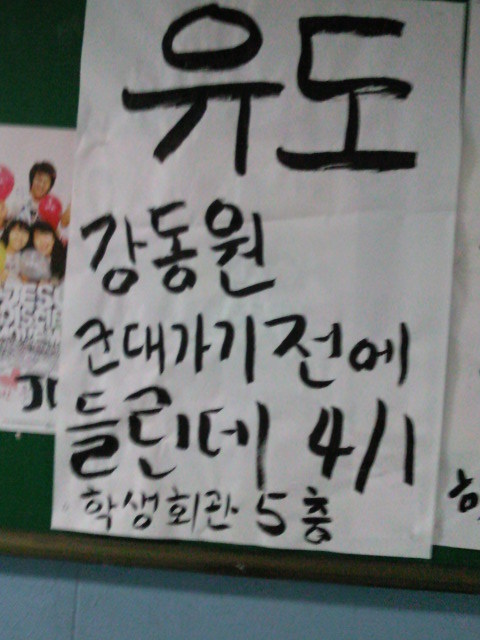 유도
강동원
군대가기전에
들린데 4/1
학생회관 5층